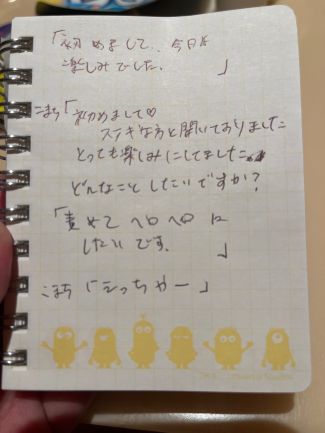 「初めまして、今日は
楽しみでした。」
こまち「初めまして♡
ステキな方と聞いておりました
とっても楽しみにしてました
どんなことしたいですか？
「責めてヘロヘロに
したいです。」
こまち「えっちゃー」